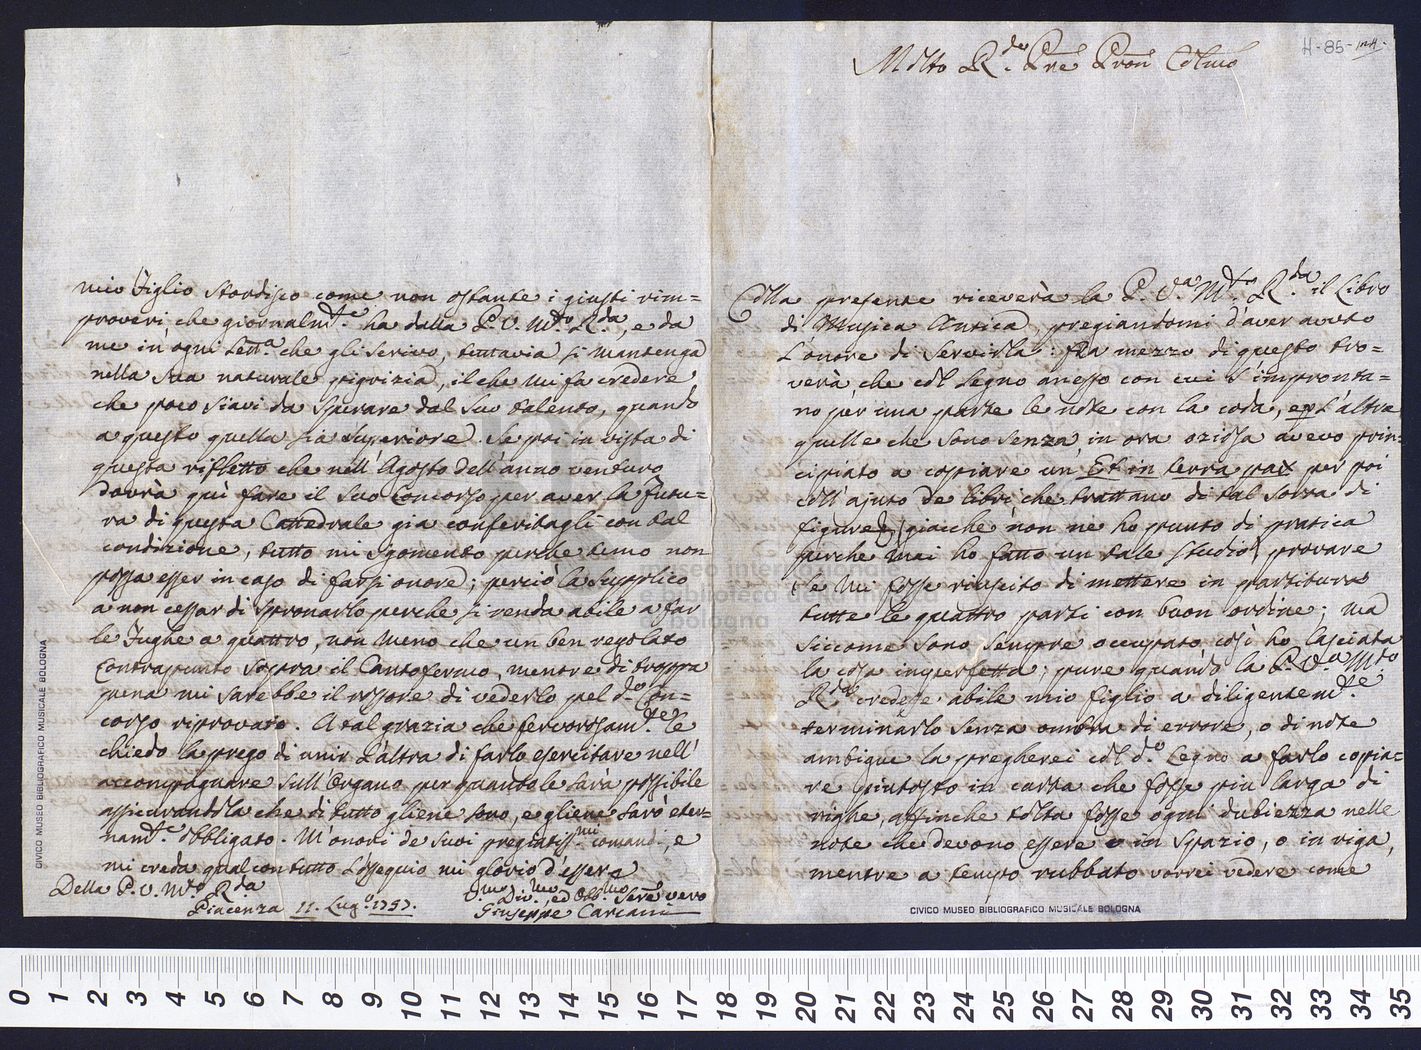 H-85-
Molto R.do Pre Pron Colmo
Colla presente riceverà la P.V.a M.to R.da il Libro
di Musica Antica, pregiandomi d'aver avuto
l'onore di servirla: fra mezzo di questo tro=
verà che col segno anesso con cui s'impronta=
no per una parte le note con la coda, e p l'altra
quelle che sono senza in ora oziosa avevo prin=
cipiato a copiare un' Et in terra pax per poi
coll'ajuto de libri che trattano di tal sorta di
figure (giacche non ne ho punto di pratica
perche mai ho fatto un tale studio) provare
se mi fosse riuscito di mettere in partitura
tutte le quattro parti con buon ordine; ma
siccome sono sempre occupato così ho lasciata
la cosa imperfetta; pure quando la P.V.a M.to
R.da credesse abile mio figlio a diligentem.te
terminarlo senza ombra di errore, o di note
ambigue la pregherei col d.o segno a farlo copia=
re piutosto in carta che fosse piu larga di
righe, affinche tolta fosse ogni dubiezza nelle
note che devono essere o in spazio, o in riga,
mentre a tempo rubbato vorrei vedere come
mio Figlio stordisco come non ostante i giusti rim=
proveri che giornalm.te ha dalla P.V. M.to R.da, e da
me in ogni lett.a che gli scrivo, tuttavia si mantenga
nella sua naturale pigrizia, il che mi fa credere
che poco siavi da sperare dal suo talento, quando
a questo quella sia superiore. Se poi in vista di
questa rifletto che nell'Agosto dell'anno venturo
dovrà quì fare il suo Concorso per aver la futu=
ra di questa Cattedrale già conferitagli con tal
condizione, tutto mi sgomento perche temo non
possa esser in caso di farsi onore; perciò la supplico
a non cessar di spronarlo perche si renda abile a far
le Fughe a quattro, non meno che un ben regolato
Contrapunto sopra il Cantofermo, mentre di troppa
pena mi sarebbe il rossore di vederlo pel d.o Con=
corso riprovato. A tal grazia che fervorosam.te le
chiedo la prego di unir l'altra di farlo esercitare nell'
accompagnare sull'Organo per quanto le sarà possibile
assicurandola che di tutto gliene sono, e gliene sarò eter=
nam.te obbligato. M'onori de suoi pregiatiss.mi comandi, e
mi creda qual con tutto l'ossequio mi glorio d'essere
Della P.V. M.to R.da
Piacenza 11. Lug.o 1757.
U.mo Div.mo, ed Obb.mo Serv.e vero
Giuseppe Carcani
CIVICO MUSEO BIBLIOGRAFICO MUSICALE BOLOGNA
CIVICO MUSEO BIBLIOGRAFICO MUSICALE BOLOGNA
museo internazionale
e biblioteca della musica
di bologna
0 1 2 3 4 5 6 7 8 9 10 11 12 13 14 15 16 17 18 19 20 21 22 23 24 25 26 27 28 29 30 31 32 33 34 35